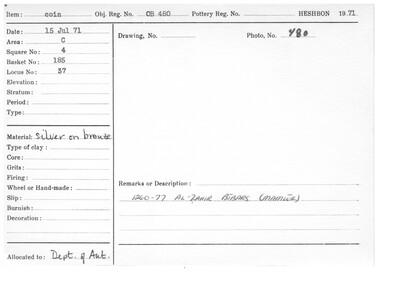 Item: coin Obj. Reg. No. OB 480 Pottery Reg. No. HESHBON 1971
Date: 15 Jul 71
Area: C
Square No: 4
Basket No: 185
Locus No: 37
Elevation:
Stratum:
Period:
Type:
Drawing, No. Photo, No. 480
Material: Silver on bronze
Type of clay:
Core:
Grits:
Firing:
Wheel or Hand-made:
Slip:
Burnish:
Decoration:
Remarks or Description:
1260-77 AL-ZAHIR BIBARS (MAMLUK)
Allocated to: Dept. of Ant.